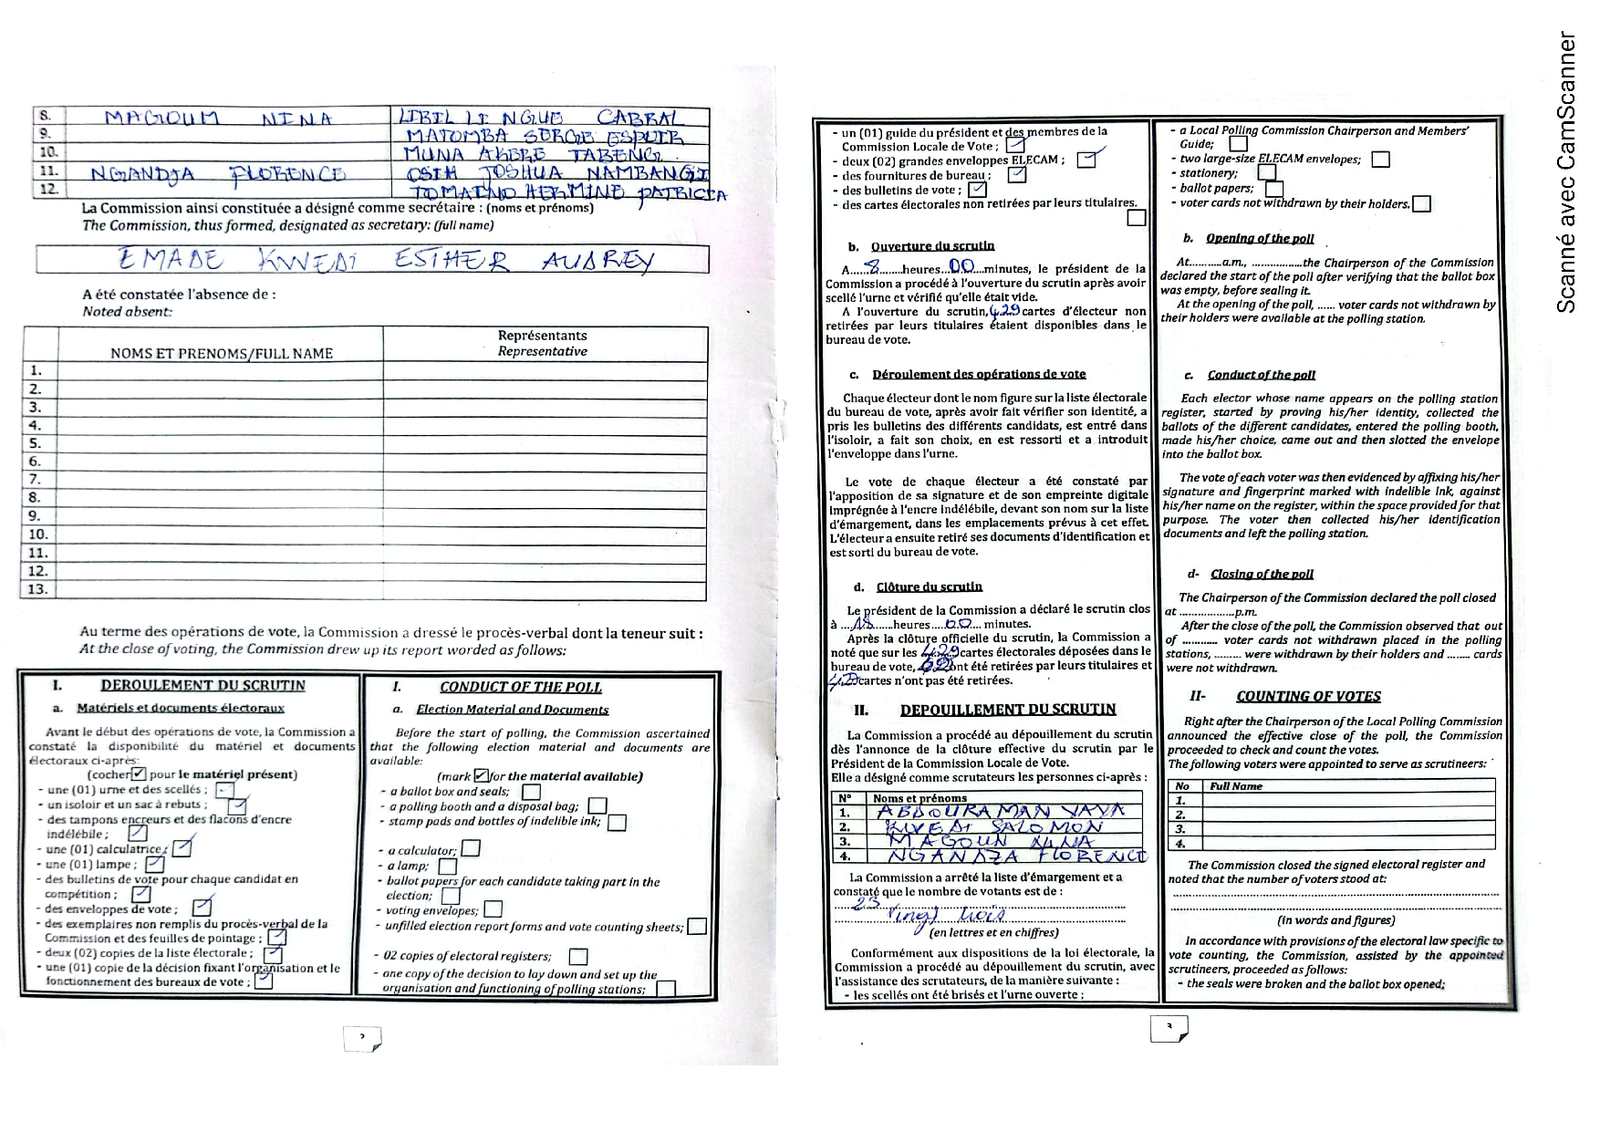 8. MAGOUM NINA LIBIL LI NGUE CABRAL
9. MATOMBA SERGE ESPOIR
10. MUNA AKERE TABENG
11. NGANDJA FLORENCE OSIH JOSHUA NAMBANGI
12. TOMAINO HERMINE PATRICIA
La Commission ainsi constituée a désigné comme secrétaire : (noms et prénoms)
The Commission, thus formed, designated as secretary: (full name)
EMADE KWEDI ESTHER AUDREY
A été constatée l'absence de :
Noted absent:
NOMS ET PRENOMS/FULL NAME
Représentants
Representative
1.
2.
3.
4.
5.
6.
7.
8.
9.
10.
11.
12.
13.
Au terme des opérations de vote, la Commission a dressé le procès-verbal dont la teneur suit :
At the close of voting, the Commission drew up its report worded as follows:
I. DEROULEMENT DU SCRUTIN
a. Matériels et documents électoraux
Avant le début des opérations de vote, la Commission a
constaté la disponibilité du matériel et documents
électoraux ci-après:
(cocher ✓ pour le matériel présent)
- une (01) urne et des scellés ;
- un isoloir et un sac à rebuts ; ✓
- des tampons encreurs et des flacons d'encre
indélébile ; ✓
- une (01) calculatrice ; ✓
- une (01) lampe ; ✓
- des bulletins de vote pour chaque candidat en
compétition ; ✓
- des enveloppes de vote ; ✓
- des exemplaires non remplis du procès-verbal de la
Commission et des feuilles de pointage ; ✓
- deux (02) copies de la liste électorale ; ✓
- une (01) copie de la décision fixant l'organisation et le
fonctionnement des bureaux de vote ; ✓
I. CONDUCT OF THE POLL
a. Election Material and Documents
Before the start of polling, the Commission ascertained
that the following election material and documents are
available:
(mark ✓ for the material available)
- a ballot box and seals;
- a polling booth and a disposal bag;
- stamp pads and bottles of indelible ink;
- a calculator;
- a lamp;
- ballot papers for each candidate taking part in the
election;
- voting envelopes;
- unfilled election report forms and vote counting sheets;
- 02 copies of electoral registers;
- one copy of the decision to lay down and set up the
organisation and functioning of polling stations;
2
- un (01) guide du président et des membres de la
Commission Locale de Vote ; ✓
- deux (02) grandes enveloppes ELECAM ; ✓
- des fournitures de bureau ; ✓
- des bulletins de vote ; ✓
- des cartes électorales non retirées par leurs titulaires.
b. Ouverture du scrutin
A.....8.....heures...00....minutes, le président de la
Commission a procédé à l'ouverture du scrutin après avoir
scellé l'urne et vérifié qu'elle était vide.
A l'ouverture du scrutin, 429 cartes d'électeur non
retirées par leurs titulaires étaient disponibles dans le
bureau de vote.
c. Déroulement des opérations de vote
Chaque électeur dont le nom figure sur la liste électorale
du bureau de vote, après avoir fait vérifier son identité, a
pris les bulletins des différents candidats, est entré dans
l'isoloir, a fait son choix, en est ressorti et a introduit
l'enveloppe dans l'urne.
Le vote de chaque électeur a été constaté par
l'apposition de sa signature et de son empreinte digitale
imprégnée à l'encre indélébile, devant son nom sur la liste
d'émargement, dans les emplacements prévus à cet effet.
L'électeur a ensuite retiré ses documents d'identification et
est sorti du bureau de vote.
d. Clôture du scrutin
Le président de la Commission a déclaré le scrutin clos
à ...18.....heures....00... minutes.
Après la clôture officielle du scrutin, la Commission a
noté que sur les 429 cartes électorales déposées dans le
bureau de vote, ont été retirées par leurs titulaires et
cartes n'ont pas été retirées.
II. DEPOUILLEMENT DU SCRUTIN
La Commission a procédé au dépouillement du scrutin
dès l'annonce de la clôture effective du scrutin par le
Président de la Commission Locale de Vote.
Elle a désigné comme scrutateurs les personnes ci-après :
N° Noms et prénoms
1. ABDOURAMAN YAYA
2. KWEDI SALOMON
3. MAGOUN NINA
4. NGANDZA FLORENCE
La Commission a arrêté la liste d'émargement et a
constaté que le nombre de votants est de :
23
vingt trois
(en lettres et en chiffres)
Conformément aux dispositions de la loi électorale, la
Commission a procédé au dépouillement du scrutin, avec
l'assistance des scrutateurs, de la manière suivante :
- les scellés ont été brisés et l'urne ouverte ;
- a Local Polling Commission Chairperson and Members'
Guide;
- two large-size ELECAM envelopes;
- stationery;
- ballot papers;
- voter cards not withdrawn by their holders.
b. Opening of the poll
At..........a.m., .................the Chairperson of the Commission
declared the start of the poll after verifying that the ballot box
was empty, before sealing it.
At the opening of the poll, ...... voter cards not withdrawn by
their holders were available at the polling station.
c. Conduct of the poll
Each elector whose name appears on the polling station
register, started by proving his/her identity, collected the
ballots of the different candidates, entered the polling booth,
made his/her choice, came out and then slotted the envelope
into the ballot box.
The vote of each voter was then evidenced by affixing his/her
signature and fingerprint marked with indelible ink, against
his/her name on the register, within the space provided for that
purpose. The voter then collected his/her identification
documents and left the polling station.
d- Closing of the poll
The Chairperson of the Commission declared the poll closed
at .................p.m.
After the close of the poll, the Commission observed that out
of ........... voter cards not withdrawn placed in the polling
stations, ......... were withdrawn by their holders and ........ cards
were not withdrawn.
II- COUNTING OF VOTES
Right after the Chairperson of the Local Polling Commission
announced the effective close of the poll, the Commission
proceeded to check and count the votes.
The following voters were appointed to serve as scrutineers:
No Full Name
1.
2.
3.
4.
The Commission closed the signed electoral register and
noted that the number of voters stood at:
(in words and figures)
In accordance with provisions of the electoral law specific to
vote counting, the Commission, assisted by the appointed
scrutineers, proceeded as follows:
- the seals were broken and the ballot box opened;
3
Scanné avec CamScanner